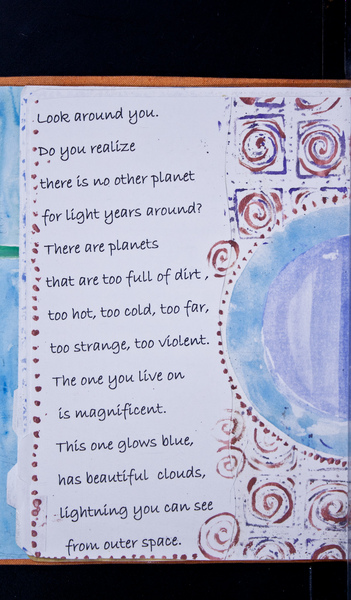 Look around you.
Do you realize
there is no other planet
for light years around?
There are planets
that are too full of dirt ,
too hot, too cold, too far,
too strange, too violent.
The one you live on
is magnificent.
This one glows blue,
has beautiful clouds,
lightning you can see
from outer space.